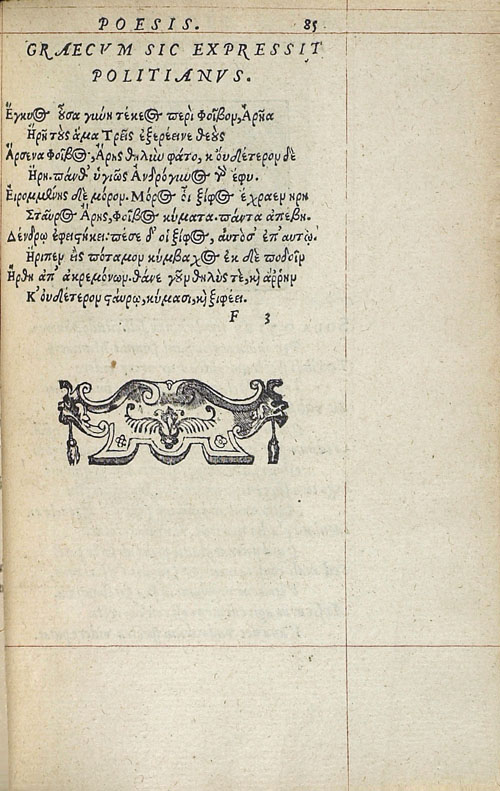 POESIS. 85
GRAECVM SIC EXPRESSIT
POLITIANVS.
Ἔγκυος οὖσα γωὴ τέκεος περὶ Φοῖβον, Ἄρηα
Ἥρω τοὺς ἅμα Τρεῖς ἐξερέεινε θεούς
Ἄρσενα Φοῖβος, Ἄρης θηλιω φάτο, κ' οὐδέτερον δὲ
Ἥρη. πάνθ' ὑγιῶς Ἀνδρόγιωος ἔφυ.
Εἰρομένης δὲ μόρον. Μόρος οἱ ξίφος ἔχραεν
Σταῦρος Ἄρης, Φοῖβος κύματα. πάντα ἀπέβη.
Δένδρῳ ἐφεισήκει: πέσε δ' οἱ ξίφος, αὐτὸς ἐπ' αὐτῷ.
Ἤριπεν εἰς πόταμον κύμβαχος ἐκ δὲ ποδοῖν
Ἤρθη ἀπ' ἀκρεμόνων. θάνε γοῦν θηλύς τὲ, κὶ ἄρρην
Κ' οὐδέτερον σαύρῳ, κύμασι, κὶ ξιφέει.
F 3